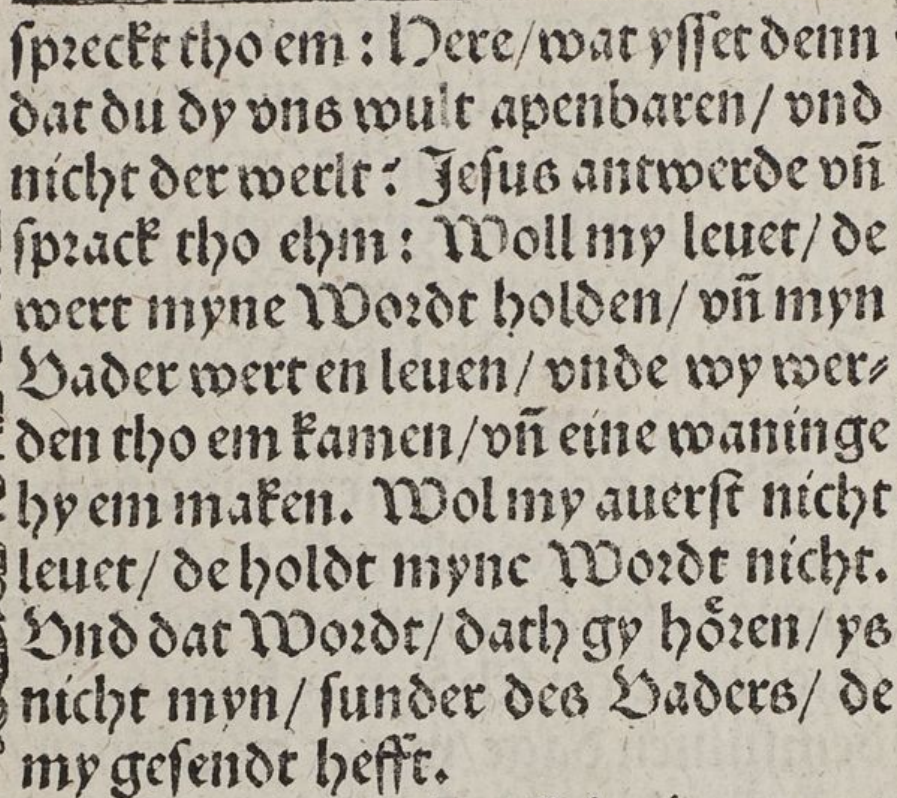 spreckt tho em : Here/ wat ysset denn
dat du dy vns wult apenbaren/ vnd
nicht der werlt? Jesus antwerde vñ
sprack tho ehm: Woll my leuet/ de
wert myne Wordt holden/ vñ myn
Vader wert en leuen/ vnde wy wer⸗
den tho em kamen/ vñ eine waninge
hy em maken. Wol my auerst nicht
leuet/ de holdt myne Wordt nicht.
Vnd dat Wordt/ dath gy hoͤren/ ys
nicht myn/ sunder des Vaders/ de
my gesendt hefft.